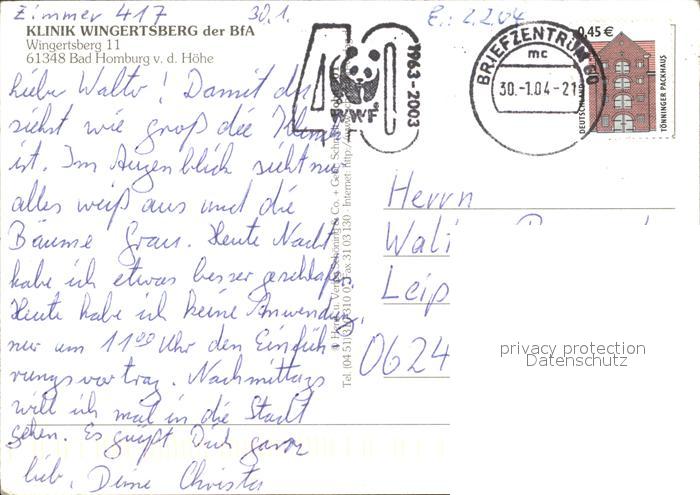 Zimmer 417 30.1. E.: 2.2.04
KLINIK WINGERTSBERG der BfA
Wingertsberg 11
61348 Bad Homburg v. d. Höhe
lieber Walter! Damit du
siehst wie groß die Klinik
ist. Im Augenblick sieht nur
alles weiß aus und die
Bäume Grau. Heute Nacht
habe ich etwas besser geschlafen.
Heute habe ich keine Anwendung,
nur um 11 00 Uhr den Einfüh
rungsvortrag. Nachmittags
will ich mal in die Stadt
gehen. Es grüßt Dich ganz
lieb, Deine Christa
40
WWF
1963-2003
BRIEFZENTRUM 60
mc
30.-1.04-21
0,45 €
DEUTSCHLAND
TÖNNINGER PACKHAUS
Tel. (04 51) 31 03 10 Fax 31 03 130 · Internet: http://www
Herrn
Wal
Leip
0624
privacy protection
Datenschutz